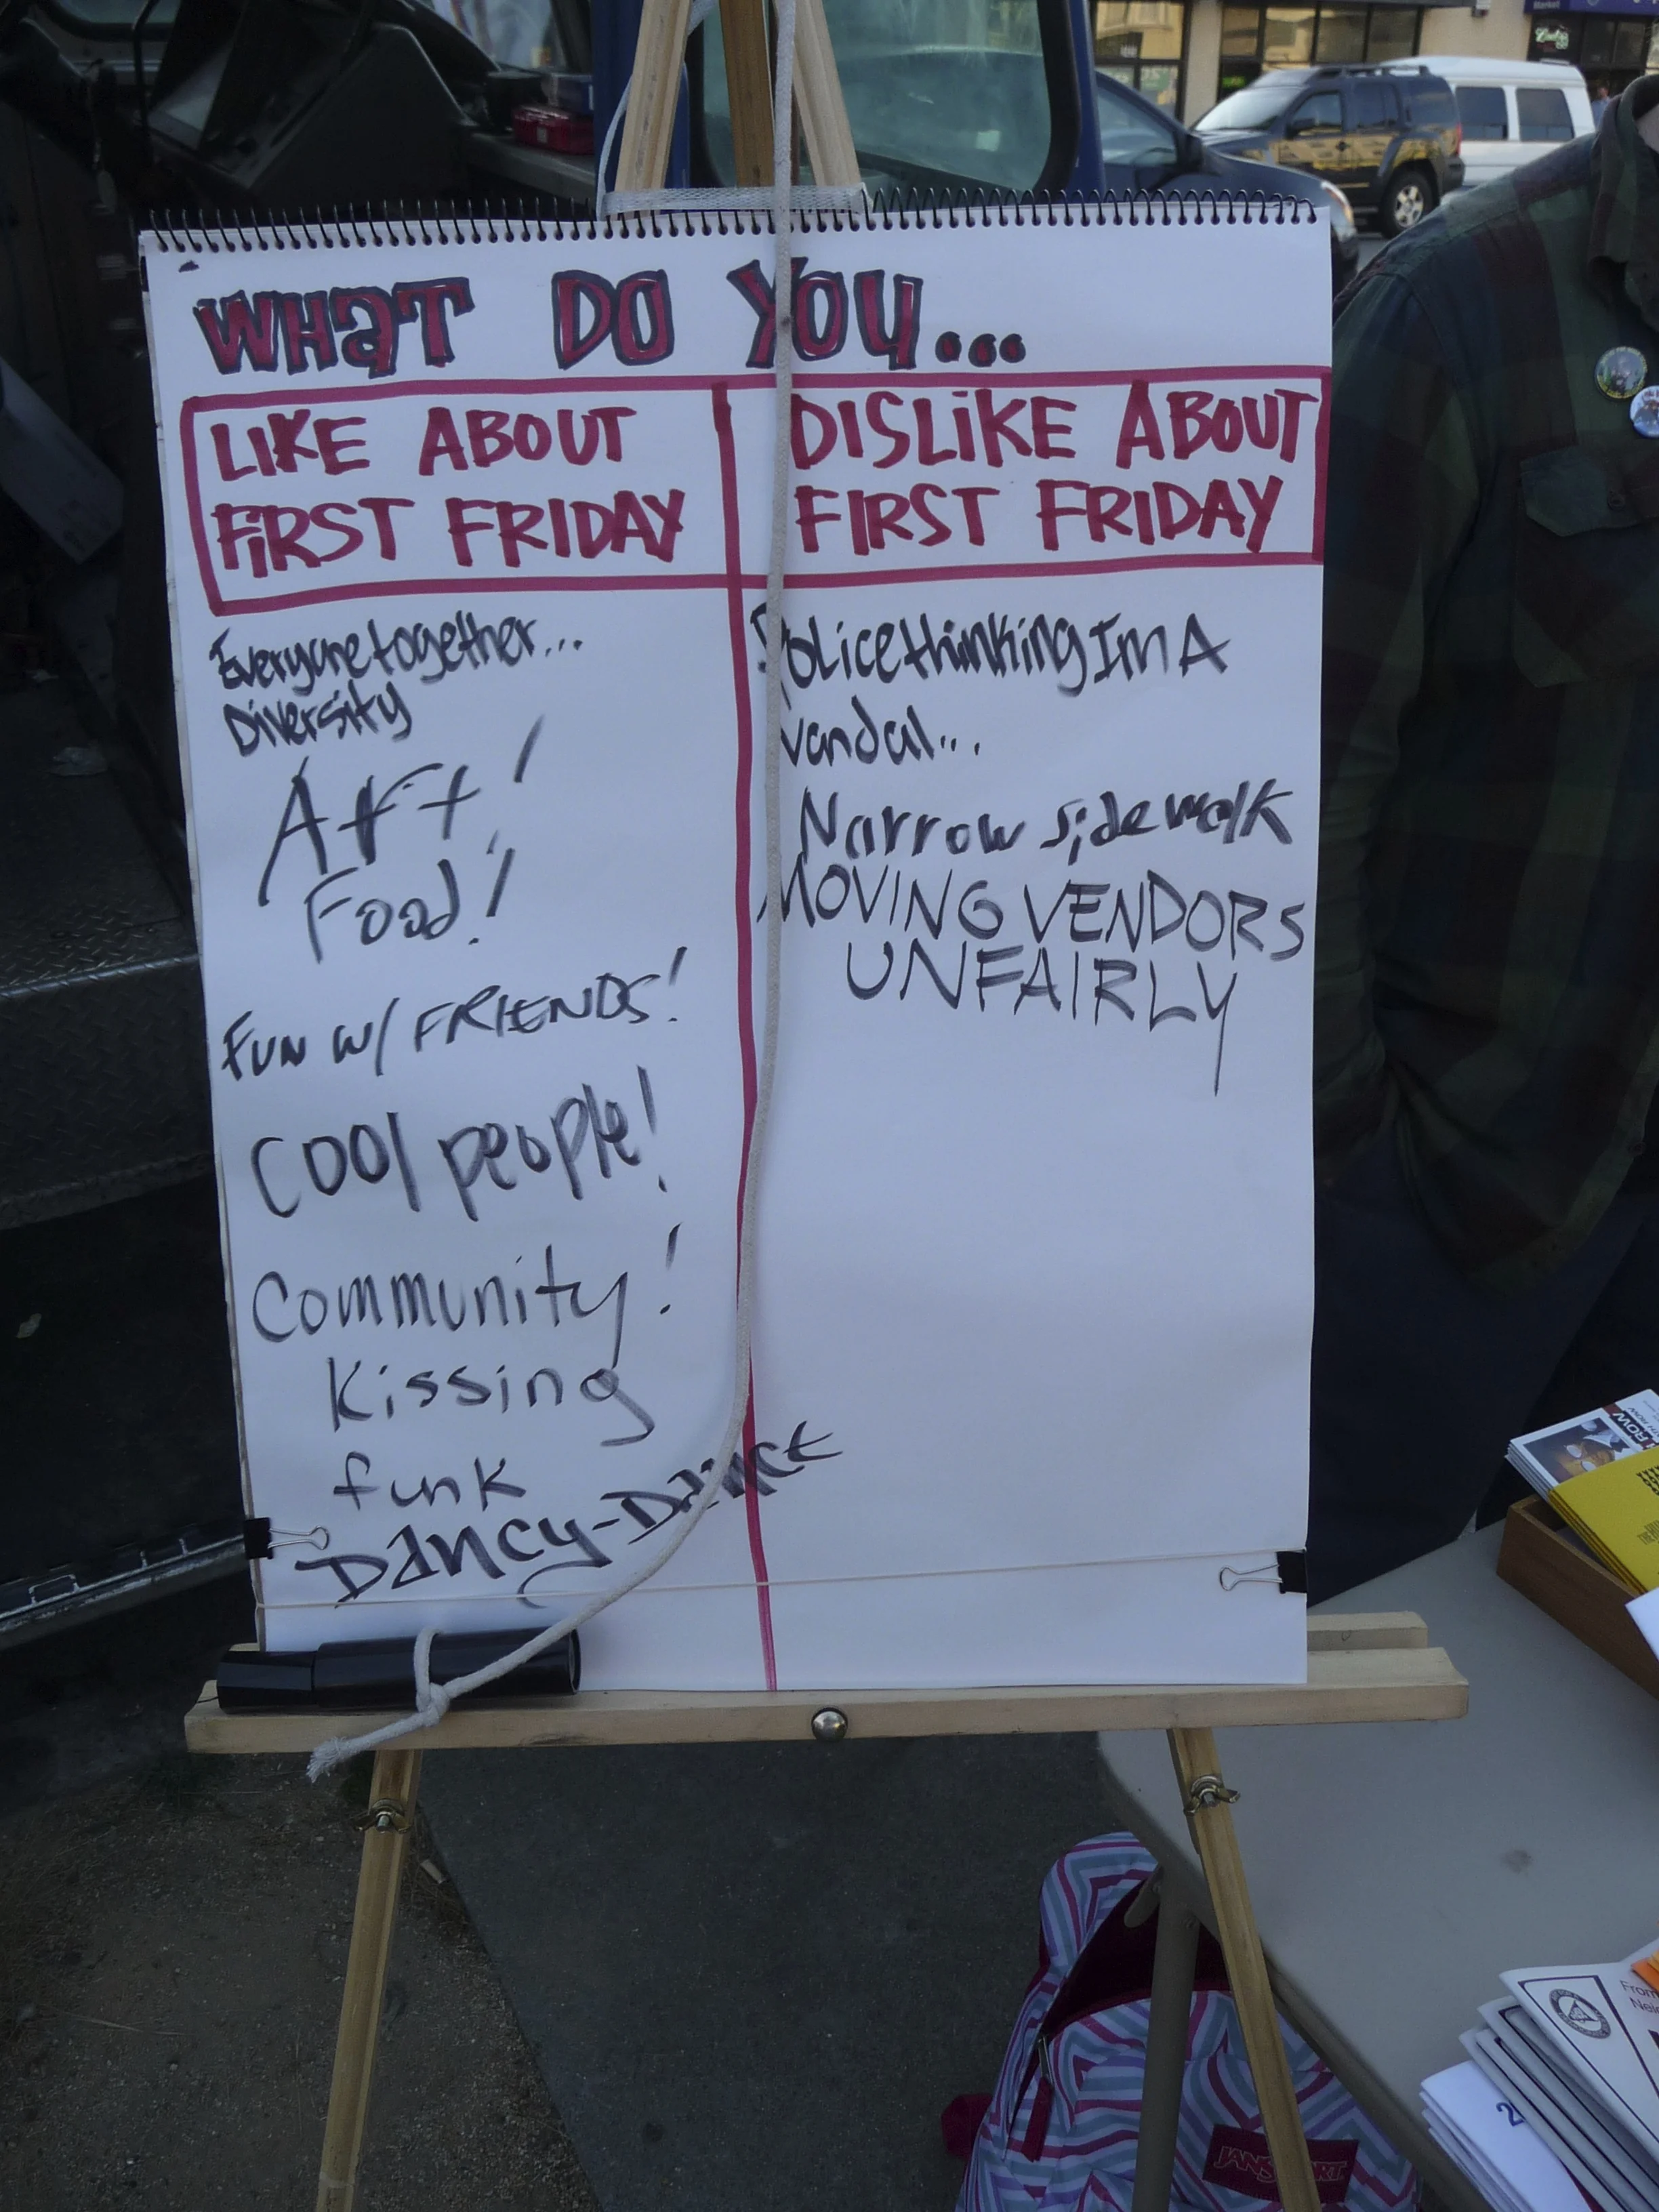 WHaT DO YOU...
LIKE ABOUT
FIRST FRIDAY
DISLIKE ABOUT
FIRST FRIDAY
Everyone together...
Diversity
Art!
Food!
FUN W/ FRIENDS!
Cool people!
Community!
Kissing
funk
DANCY-DANCE
Police thinking Im A
vandal...
Narrow sidewalk
MOVING VENDORS
UNFAIRLY
Market
ROW
From
JANSPORT